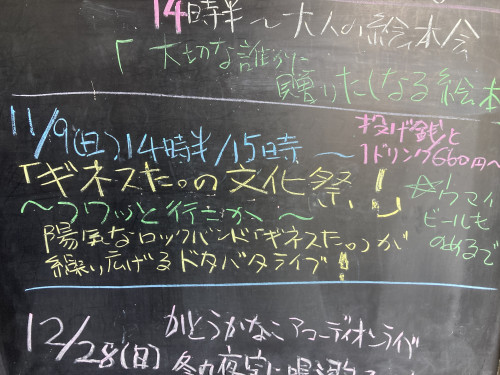 14時半〜大人の絵本会
「大切な誰かに
贈りたくなる絵本
11/9(日)14時半/15時〜
投げ銭と
1ドリンク660円〜
「ギネスた。の文化祭!」
〜フワッと行こか〜
☆ウマイ
ビールも
のめるで
陽気なロックバンド「ギネスた。」が
繰り広げるドタバタライブ!
12/28(日)
かとうかなこアコーディオンライブ
冬の夜空に鳴り